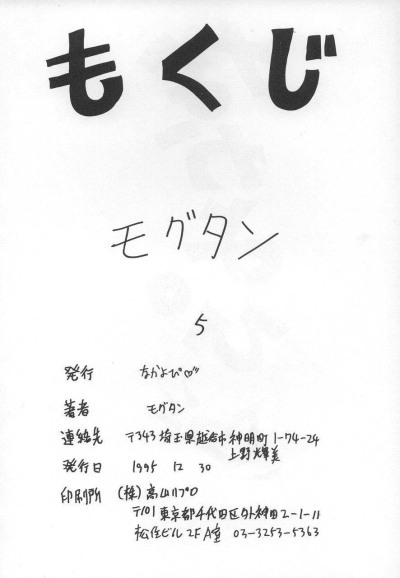 もくじ
モグタン
5
発行 なかよぴ♡
著者 モグタン
連絡先 〒343 埼玉県越谷市神明町 1-74-24
上野輝美
発行日 1995 12 30
印刷所 (株)高山リプロ
〒101 東京都千代田区外神田2-1-11
松住ビル2F A室 03-3253-5363